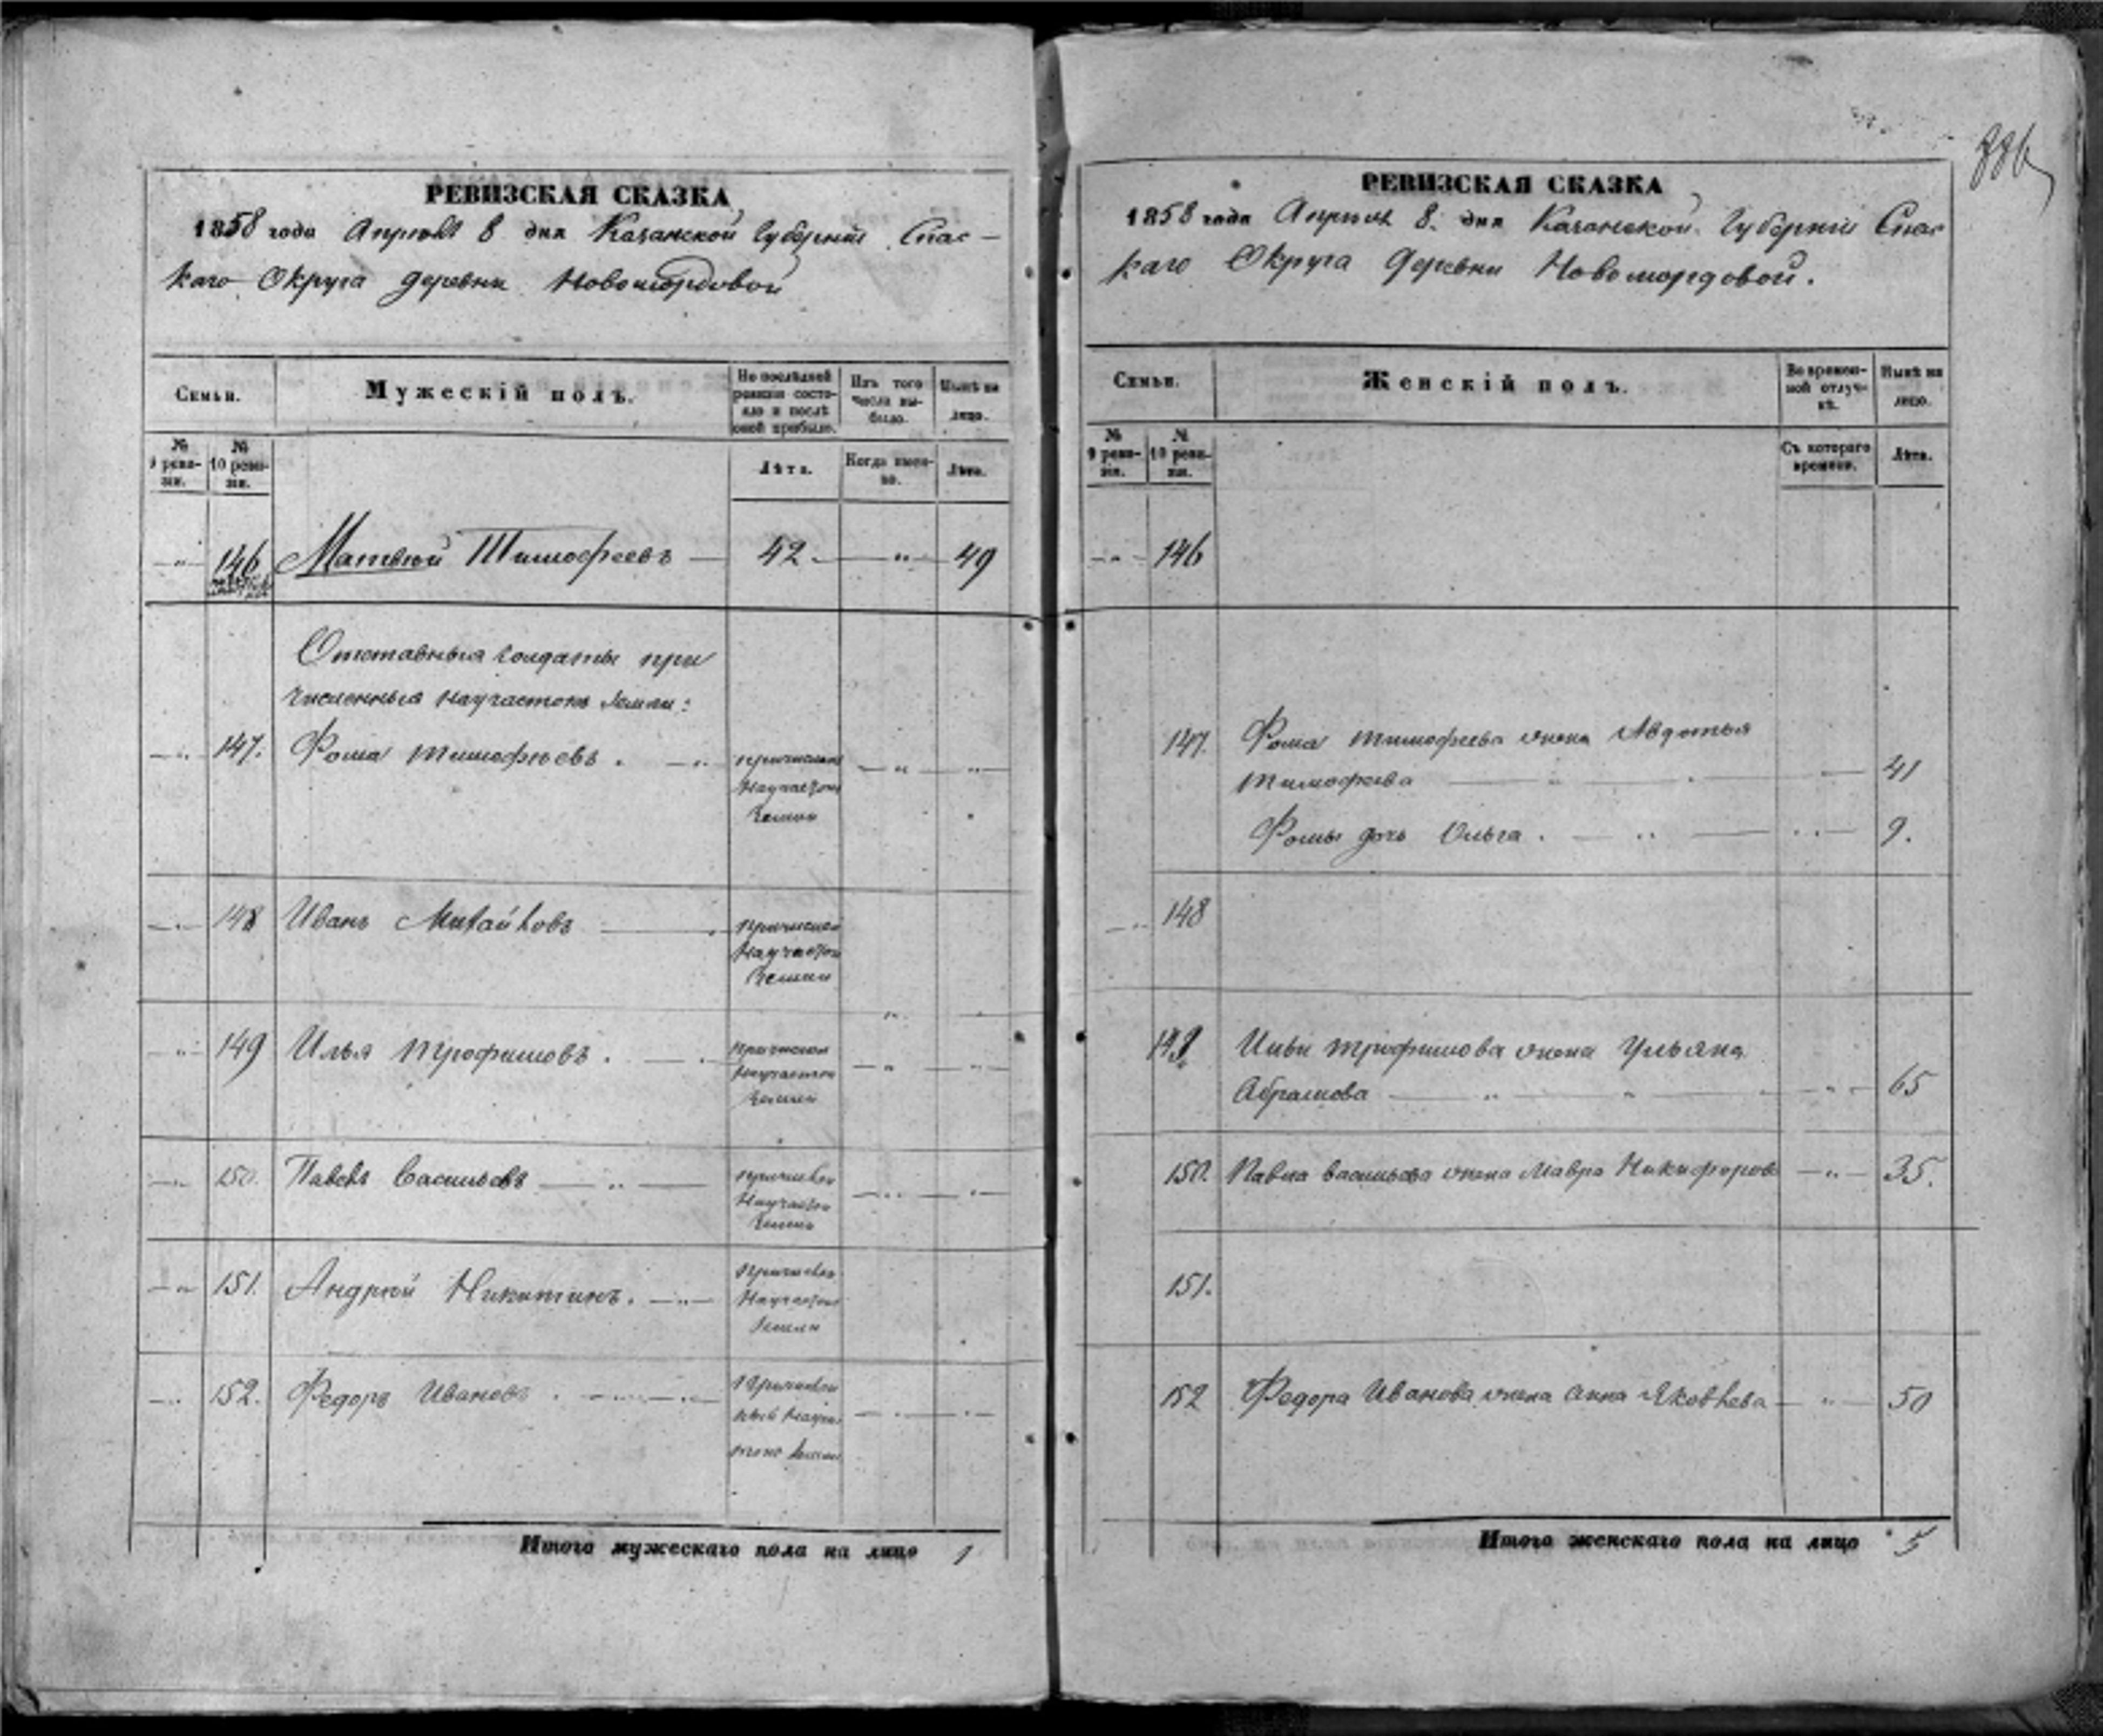 РЕВИЗСКАЯ СКАЗКА
1858 года Апреля 8 дня Казанской Губернiи Спас-
каго Округа деревни Новомордовой
Семьи.
Мужескiй полъ.
По последней ревизiи состояло и послѣ оной прибыло.
Изъ того числа выбыло.
Нынѣ на лицо.
№ 9 ревизiи.
№ 10 ревизiи.
Лѣта.
Когда именно.
Лѣта.
146 Матвѣй Тимофеевъ 42 49
Отставныя солдаты при
численныя научастокъ Земли:
147. Фома Тимофѣевъ.
причислен
научасток
Земли
148 Иванъ Михайловъ
причислен
научасток
Земли
149 Илья Трофимовъ.
причислен
научасток
Земли
150. Павелъ Васильевъ
причислен
научасток
Земли
151. Андрѣй Никитинъ.
причислен
научасток
Земли
152. Федоръ Ивановъ.
Земли
Итого мужескаго пола на лицо 1
РЕВИЗСКАЯ СКАЗКА
1858 года Апреля 8. дня Казанской Губернiи Спас
каго Округа Деревни Новомордовой.
Семьи.
Женскiй полъ.
Во временной отлучкѣ.
Нынѣ на лицо.
№ 9 ревизiи.
№ 10 ревизiи.
Съ котораго времени.
Лѣта.
146
147. Фома Тимофеева жена Авдотья
Тимофеева 41
Фомы дочь Ольга. 9.
148
149 Ильи Трофимова жена Ульяна
Абрамова 65
150. Павла Васильева жена Мавра Никифорова 35.
151.
152 Федора Иванова жена Анна Яковлева 50
Итого женскаго пола на лицо 5